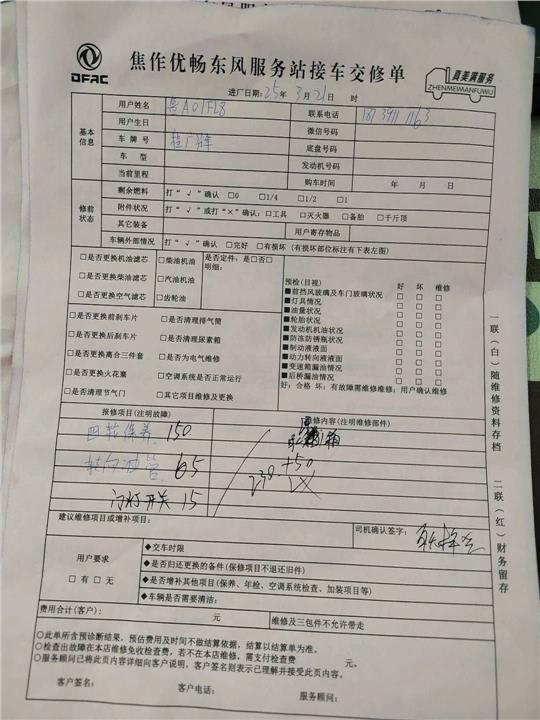 DFAC
焦作优畅东风服务站接车交修单
真美满服务
ZHENMEIMANFUWU
进厂日期:25年 3月21日 时
基本信息
用户姓名 A01FL8 联系电话
用户生日 微信号码
车牌号 底盘号码
车型 发动机号码
当前里程 购车时间 年 月 日
修前状态
剩余燃料 打“√”确认 □0 □1/4 □1/2 □1
附件状况 打“√”或打“×”确认:□工具 □灭火器 □备胎 □千斤顶
其它装备 用户寄存物品
车辆外部情况 打“√”确认 □完好 □有损坏(有损坏部位标注有下表左图)
□是否更换机油滤芯 □柴油机油 是否定件:是□否□
□是否更换柴油滤芯 □汽油机油 明细:
□是否更换空气滤芯 □齿轮油
□是否更换前刹车片 □是否清理排气筒
□是否更换后刹车片 □是否清理尿素箱
□是否更换离合三件套 □是否为电气维修
□是否更换火花塞 □空调系统是否正常运行
□是否清理节气门 □其它项目维修及更换
预检(目视) 好 坏 维修
■前挡风玻璃及车门玻璃状况 □ □ □
■灯具情况 □ □ □
■油量状况 □ □ □
■轮胎状况 □ □ □
■发动机机油状况 □ □ □
■防冻防锈瓶状况 □ □ □
■制动液液面 □ □ □
■动力转向液液面 □ □ □
■变速箱漏油情况 □ □ □
■后桥漏油情况 □ □ □
好:合格 坏:有故障需维修维修:用户确认维修
报修项目(注明故障) 维修内容(注明维修部件)
四轮保养 150
转向油管 65
门灯开关 15
230+50
建议维修项目或增补项目:
司机确认签字:
用户要求
□有□无
◆交车时限
◆是否归还更换的备件(保修项目不退还旧件)
◆是否增补其他项目(保养、年检、空调系统检查、加装项目等)
◆车辆是否需要清洁:
费用合计(客户): 元 维修及三包件不允许带走
○此单所含预诊断结果,预估费用及时间不做结算依据,结算以结算单为准。
○检查出故障在本店维修免收检查费,若不在本店维修,需支付检查费 元。
○服务顾问已将此页内容详细向客户说明,客户签名则表示已理解并接受此页内容。
客户签名: 客户电话: 服务顾问:
一联(白)随维修资料存档
二联(红)财务留存